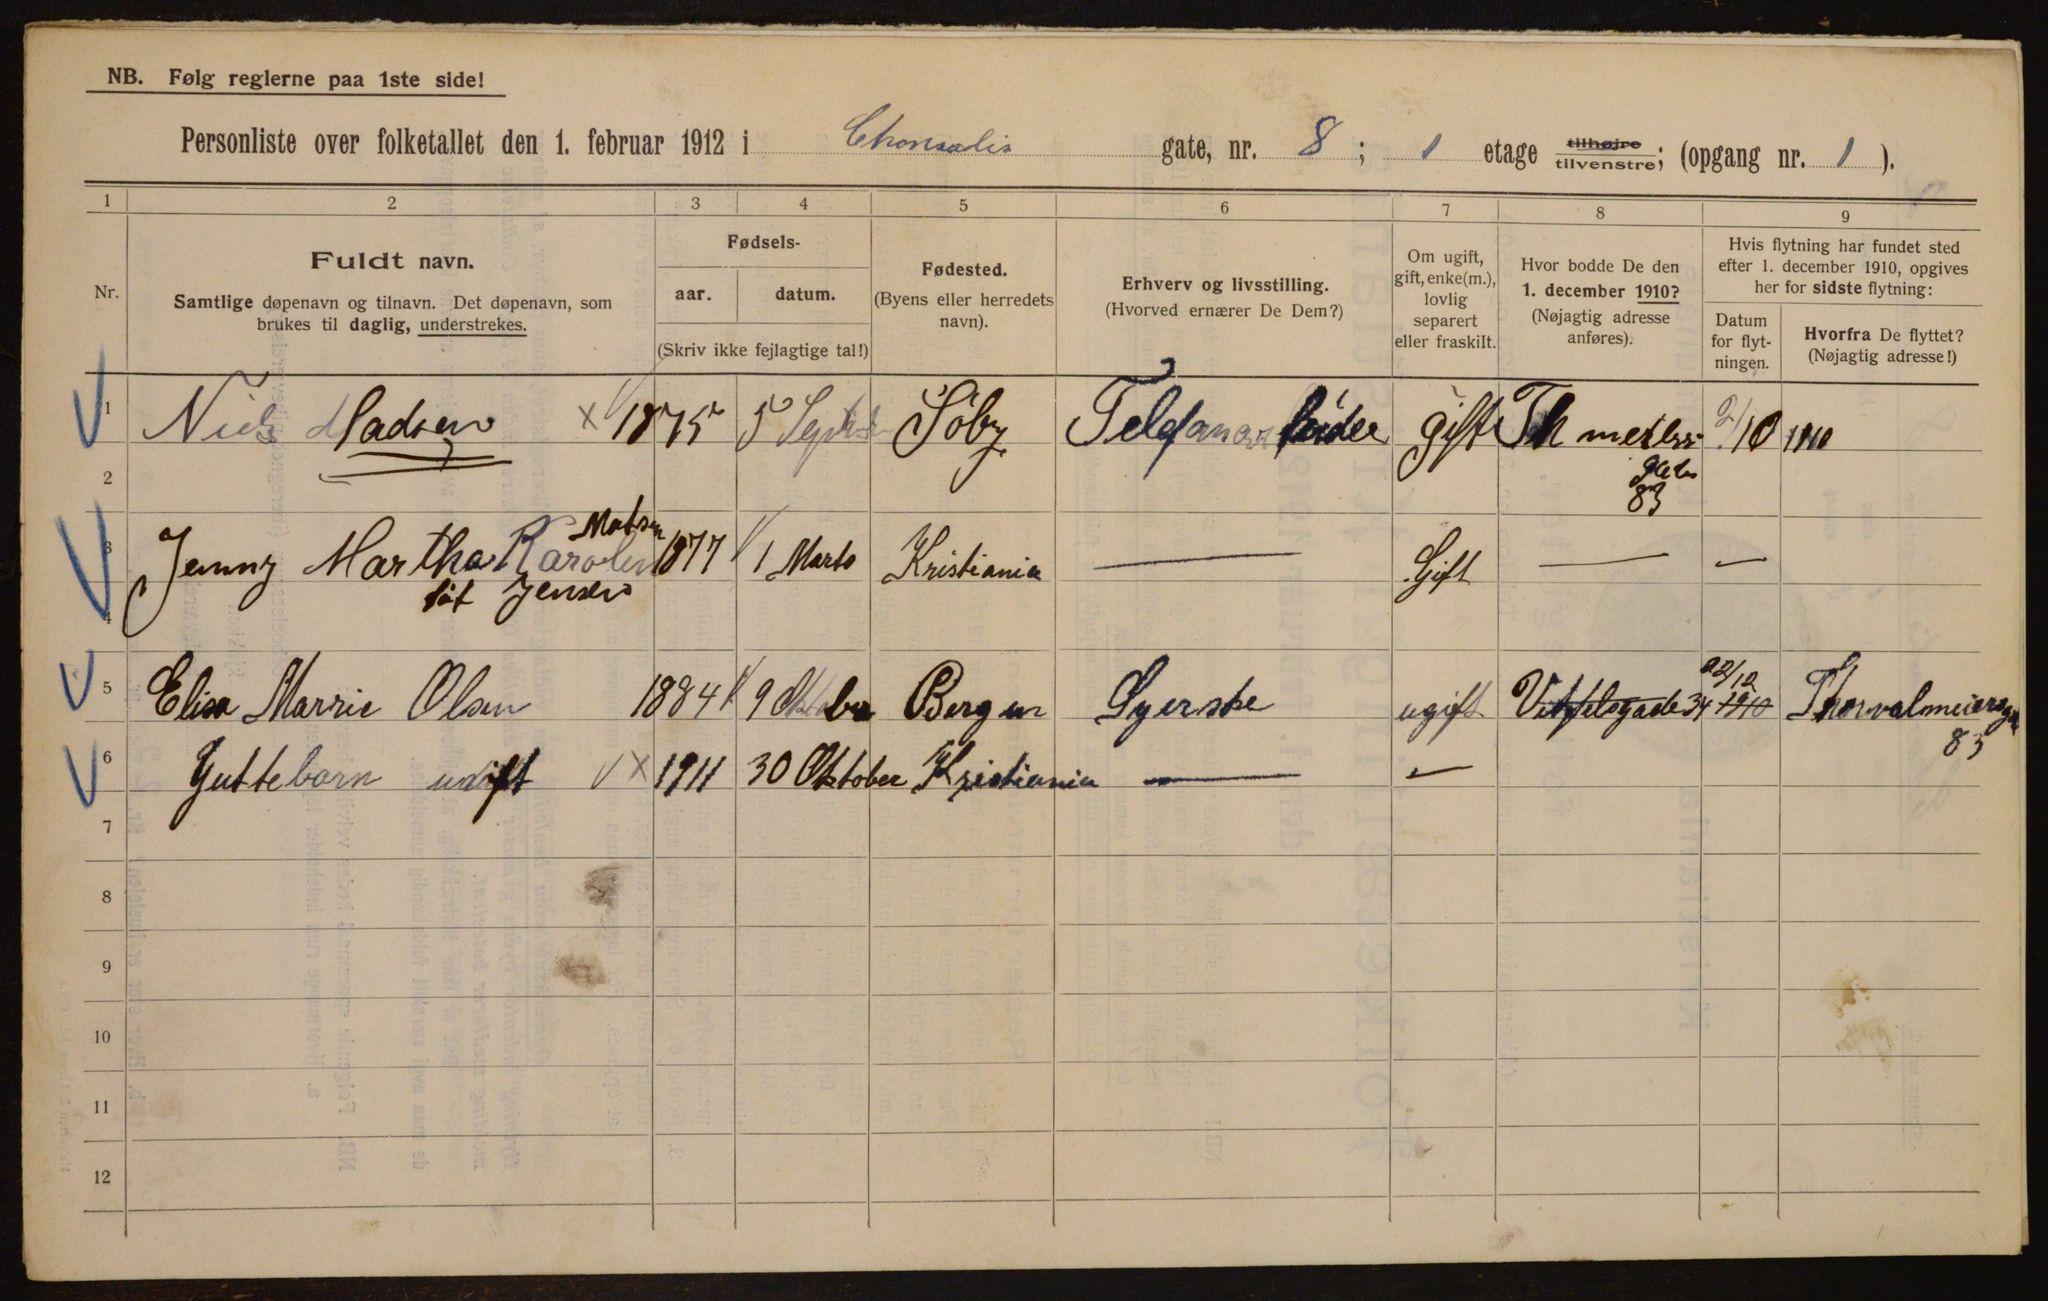 NB. Følg reglerne paa 1ste side!
Personliste over folketallet den 1. februar 1912 i Chonsalis gate, nr. 8; 1 etage tilhøjre tilvenstre; (opgang nr. 1).
1 2 3 4 5 6 7 8 9
Nr.
Fuldt navn.
Samtlige døpenavn og tilnavn. Det døpenavn, som
brukes til daglig, understrekes.
Fødsels-
aar. datum.
(Skriv ikke fejlagtige tal!)
Fødested.
(Byens eller herredets
navn).
Erhverv og livsstilling.
(Hvorved ernærer De Dem?)
Om ugift,
gift, enke(m.),
lovlig
separert
eller fraskilt.
Hvor bodde De den
1. december 1910?
(Nøjagtig adresse
anføres).
Hvis flytning har fundet sted
efter 1. december 1910, opgives
her for sidste flytning:
Datum
for flyt-
ningen.
Hvorfra De flyttet?
(Nøjagtig adresse!)
1 Niels Madsen x 1875 5 Septeb Söby Telefonarbeider gift Th 2/10 1910
83
2
Matsen
3 Jenny Martha Karolin 1877 1 Marts Kristiania — Gift — —
föt Jensen
4
22/12
5 Elisa Marrie Olsen 1884 9 Oktober Bergen Syerske ugift 34 1910 Thorvalmeiersga
83
6 Guttebarn udöft x 1911 30 Oktober Kristiania — —
7
8
9
10
11
12